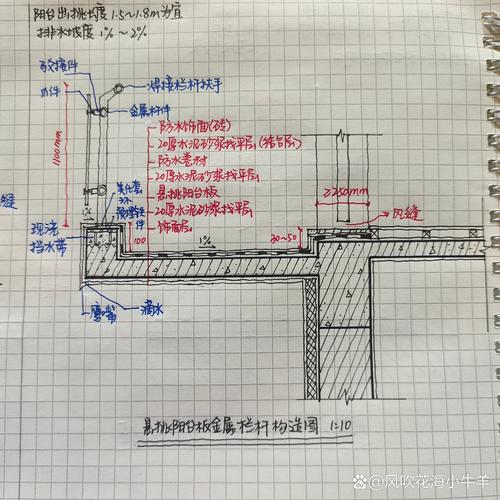 阳台出挑长度1.5~1.8m为宜
排水坡度1%~2%
铰接件
爪件
焊接栏杆扶手
金属杆件
1100mm
防水饰面(砖)
20厚水泥砂浆找平层(结合层)
防水卷材
20厚水泥砂浆找平层
悬挑阳台板
20厚水泥砂浆找平层
饰面层
≥250mm
风缝
缝
预埋铁件
现浇
挡水带
1%
100
1%
30~50
鹰嘴
滴水
悬挑阳台板金属栏杆构造图 1:10
@风吹花海小牛羊